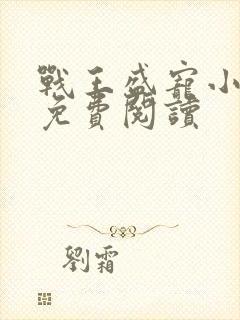 戰王盛寵小
免費閱讀
劉霜